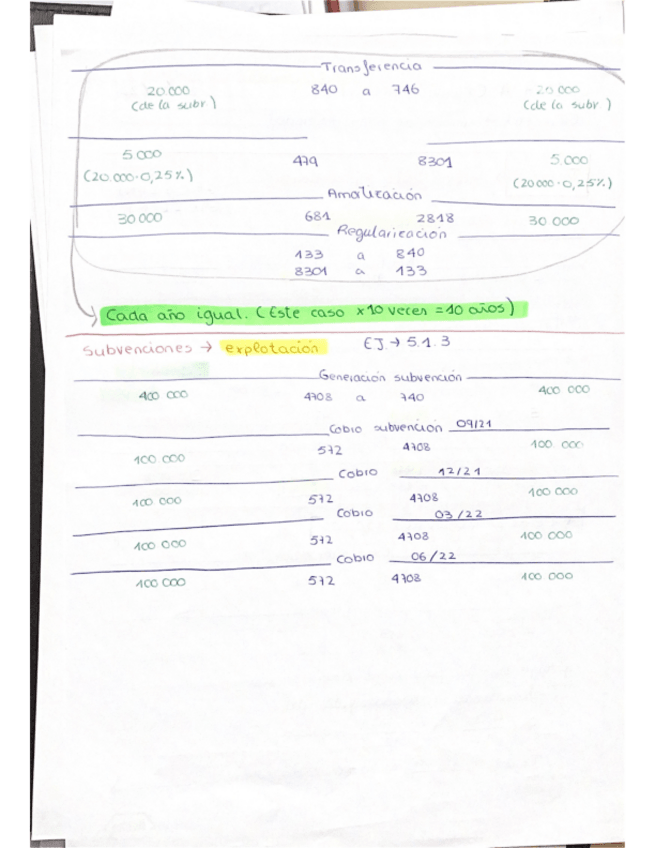 Transferencia
20.000 840 a 746 20 000
(de la subr) (de la subr)
5 000 479 8301 5.000
(20.000·0,25%) (20 000·0,25%)
Amortización
30 000 681 2818 30 000
Regularización
133 a 840
8301 a 133
Cada año igual. (Este caso x10 veces = 10 años)
Subvenciones → explotación EJ.→ 5.1.3
Generación subvención
400 000 4708 a 740 400 000
Cobro subvención 09/21
100 000 572 4708 100 000
Cobro 12/21
100 000 572 4708 100 000
Cobro 03/22
100 000 572 4708 100 000
Cobro 06/22
100 000 572 4708 100 000